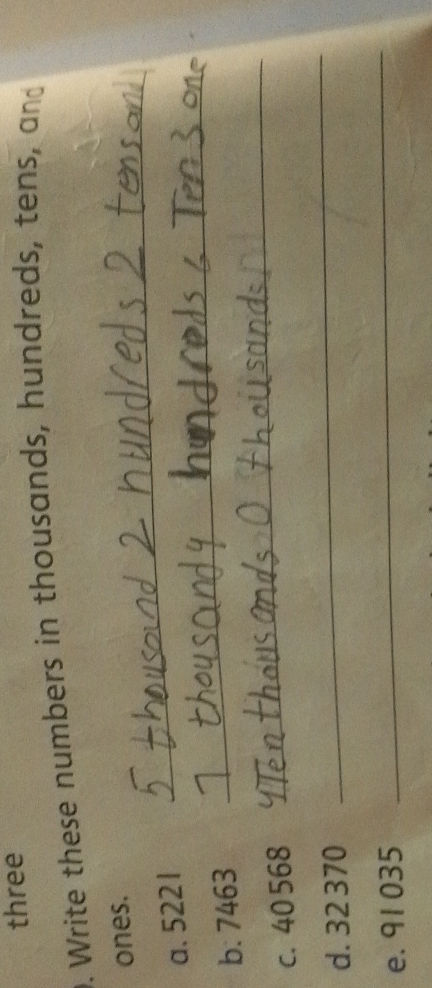 three
. Write these numbers in thousands, hundreds, tens, and
ones.
a. 5221 5 thousand 2 hundreds 2 tens and 1
b. 7463 7 thousand 4 hundreds 6 Ten 3 one
c. 40568 4 Ten thousands 0 thousands
d. 32370
e. 91035